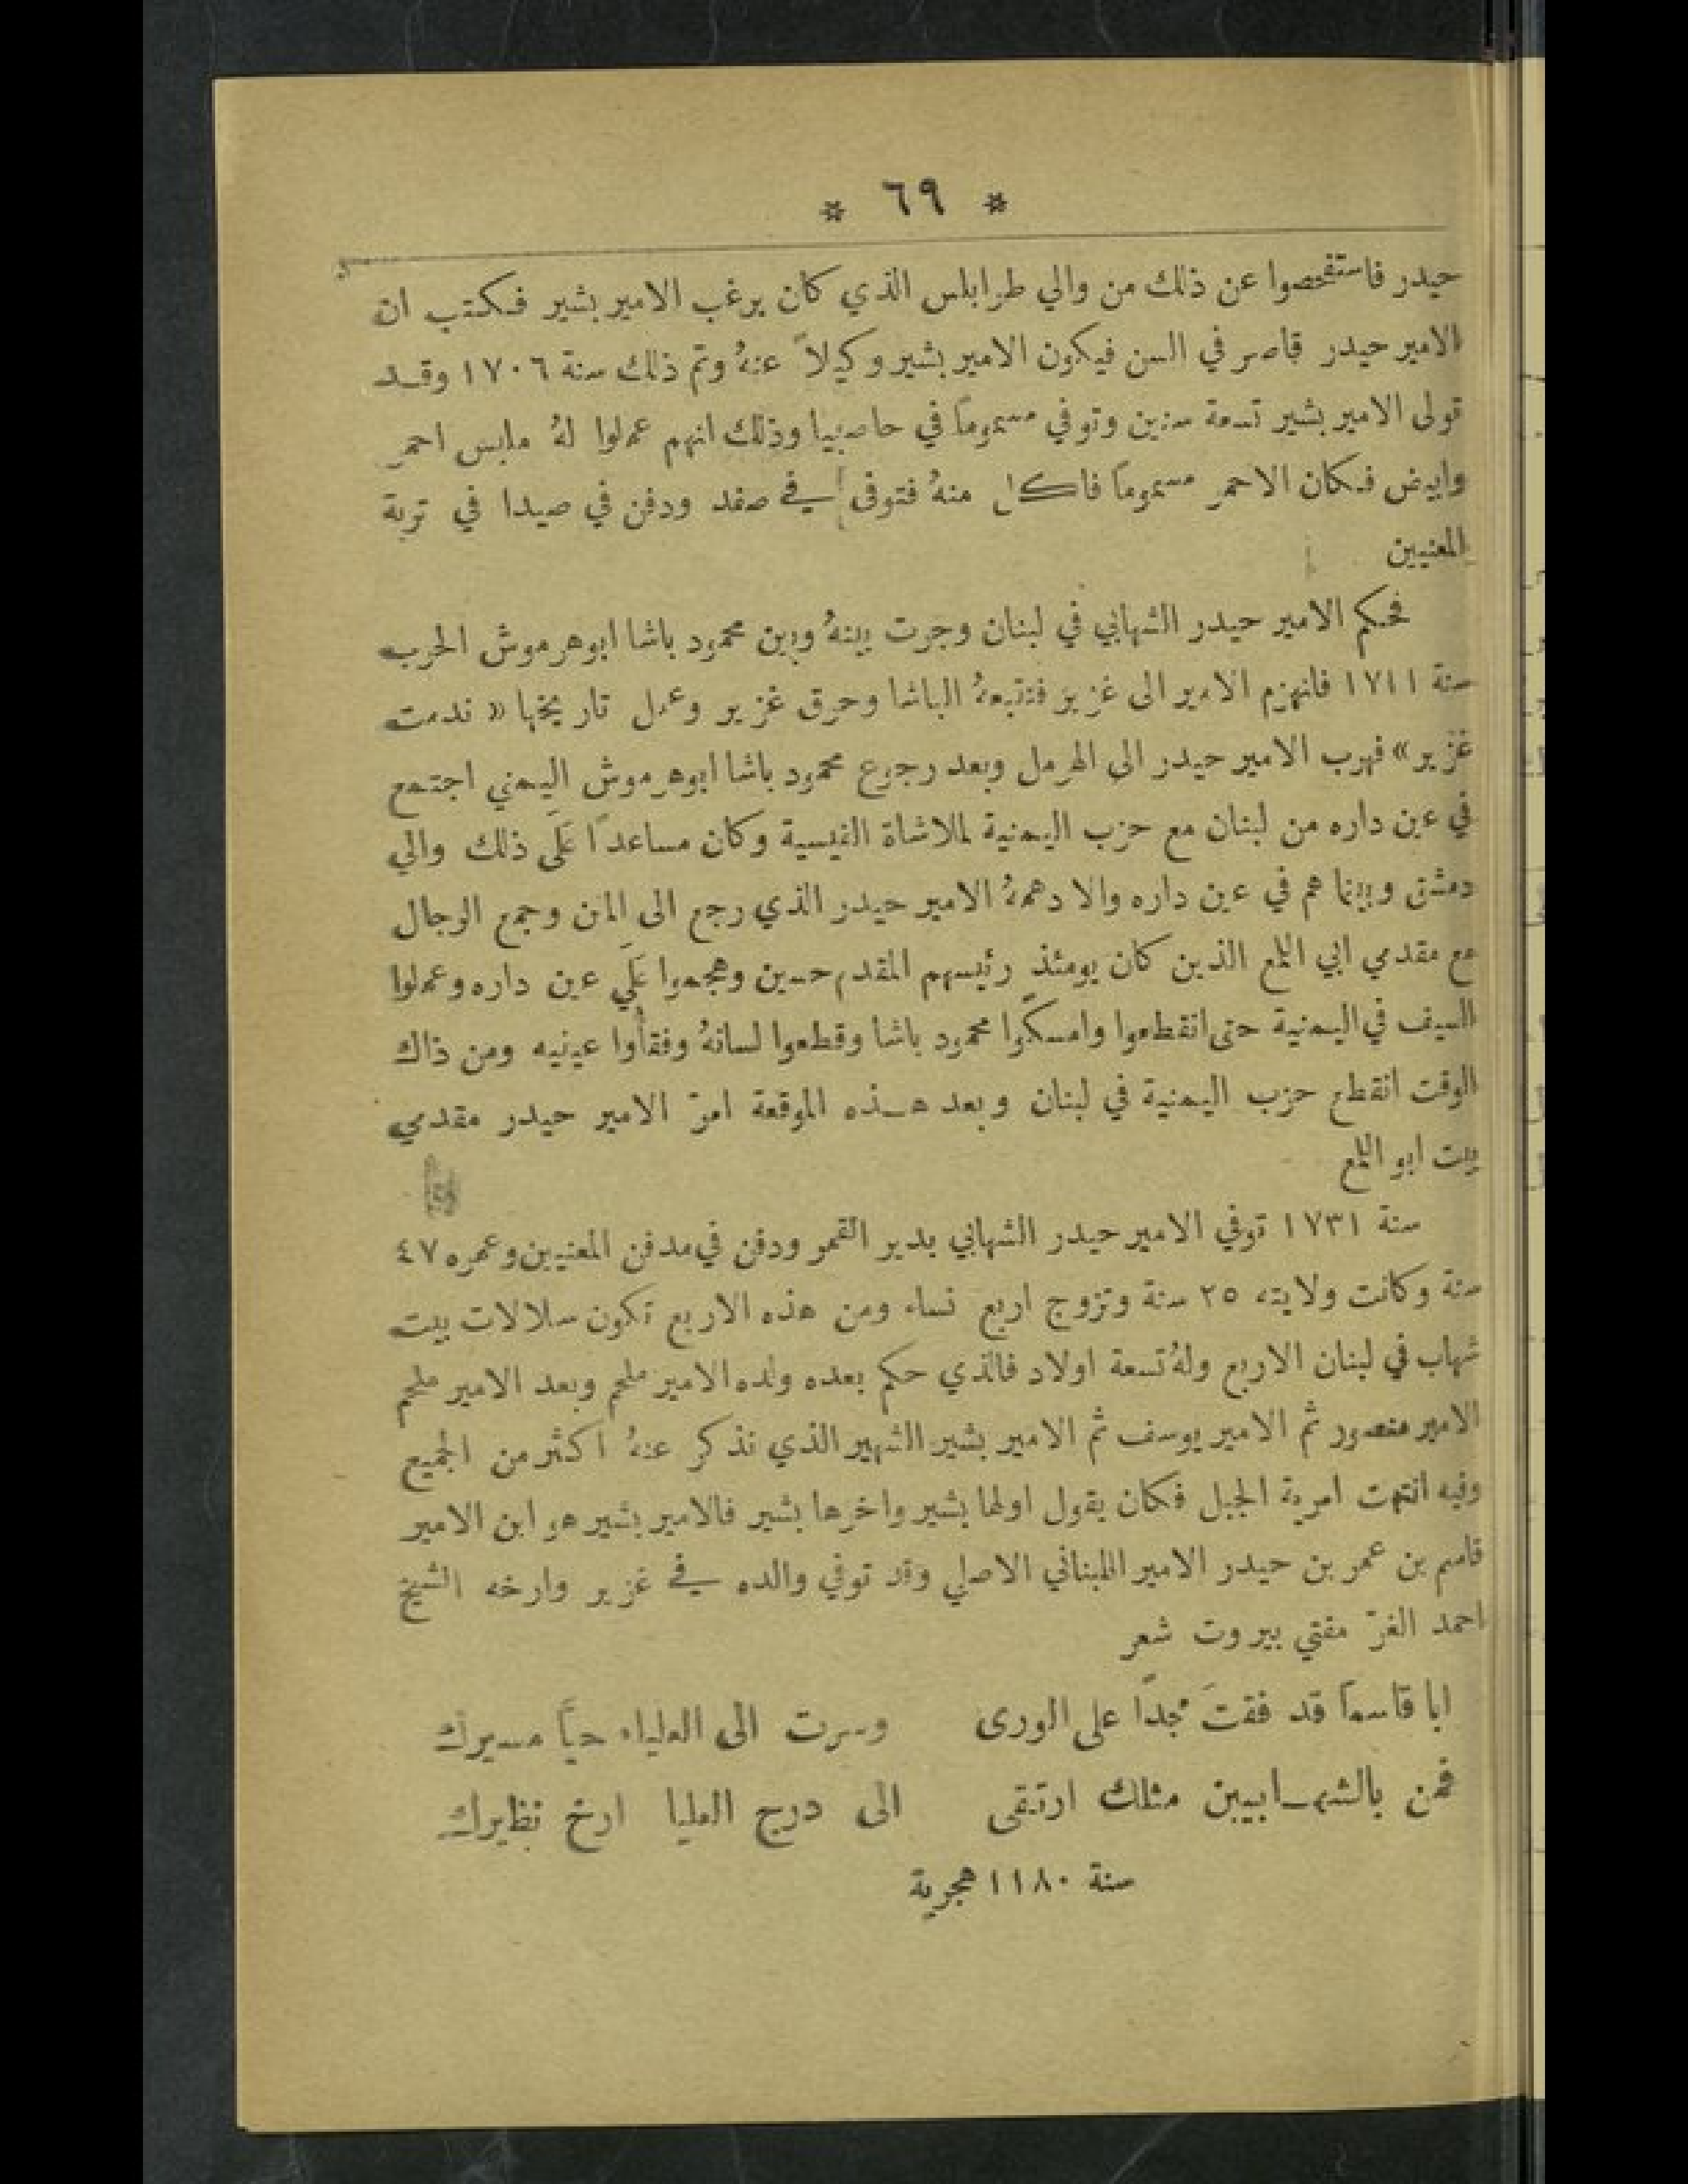 * ٦٩ *
حيدر فاستفحصوا عن ذلك من والي طرابلس الذي كان يرغب الامير بشير فكتب ان
الامير حيدر قاصر في السن فيكون الامير بشير وكيلاً عنهُ وتم ذلك سنة ١٧٠٦ وقد
تولى الامير بشير تسعة سنين وتوفي مسموماً في حاصبيا وذلك انهم عملوا لهُ ملبس احمر
وابيض فكان الاحمر مسموماً فاكل منهُ فتوفى في صفد ودفن في صيدا في تربة
المعنيين
فحكم الامير حيدر الشهابي في لبنان وجرت بينهُ وبين محمود باشا ابوهرموش الحرب
سنة ١٧١١ فانهزم الامير الى غزير فتتبعهُ الباشا وحرق غزير وعمل تاريخها « ندمت
غزير » فهرب الامير حيدر الى الهرمل وبعد رجوع محمود باشا ابوهرموش اليمني اجتمع
في عين داره من لبنان مع حزب اليمنية لملاشاة القيسية وكان مساعداً عَلَى ذلك والي
دمشق وبينما هم في عين داره والا دهمهُ الامير حيدر الذي رجع الى المتن وجمع الرجال
مع مقدمي ابي اللمع الذين كان يومئذٍ رئيسهم المقدم حسين وهجموا عَلَى عين داره وعملوا
السيف في اليمنية حتى انقطعوا وامسكوا محمود باشا وقطعوا لسانهُ وفقأوا عينيه ومن ذاك
الوقت انقطع حزب اليمنية في لبنان وبعد هذه الموقعة امرّ الامير حيدر مقدمي
بيت ابو اللمع
سنة ١٧٣١ توفي الامير حيدر الشهابي بدير القمر ودفن في مدفن المعنيين وعمره ٤٧
سنة وكانت ولايته ٢٥ سنة وتزوج اربع نساء ومن هذه الاربع تكون سلالات بيت
شهاب في لبنان الاربع ولهُ تسعة اولاد فالذي حكم بعده ولده الامير ملحم وبعد الامير ملحم
الامير منصور ثم الامير يوسف ثم الامير بشير الشهير الذي نذكر عنهُ اكثر من الجميع
وفيه انتهت امرية الجبل فكان يقول اولها بشير واخرها بشير فالامير بشير هو ابن الامير
قاسم بن عمر بن حيدر الامير اللبناني الاصلي وقد توفي والده في غزير وارخه الشيخ
احمد الغرّ مفتي بيروت شعر
ابا قاسماً قد فقتَ مجداً على الورى وسرت الى العلياء حيّاً مسيرك
فمن بالشهابيين مثلك ارتقى الى درج العليا ارخ نظيرك
سنة ١١٨٠ هجرية